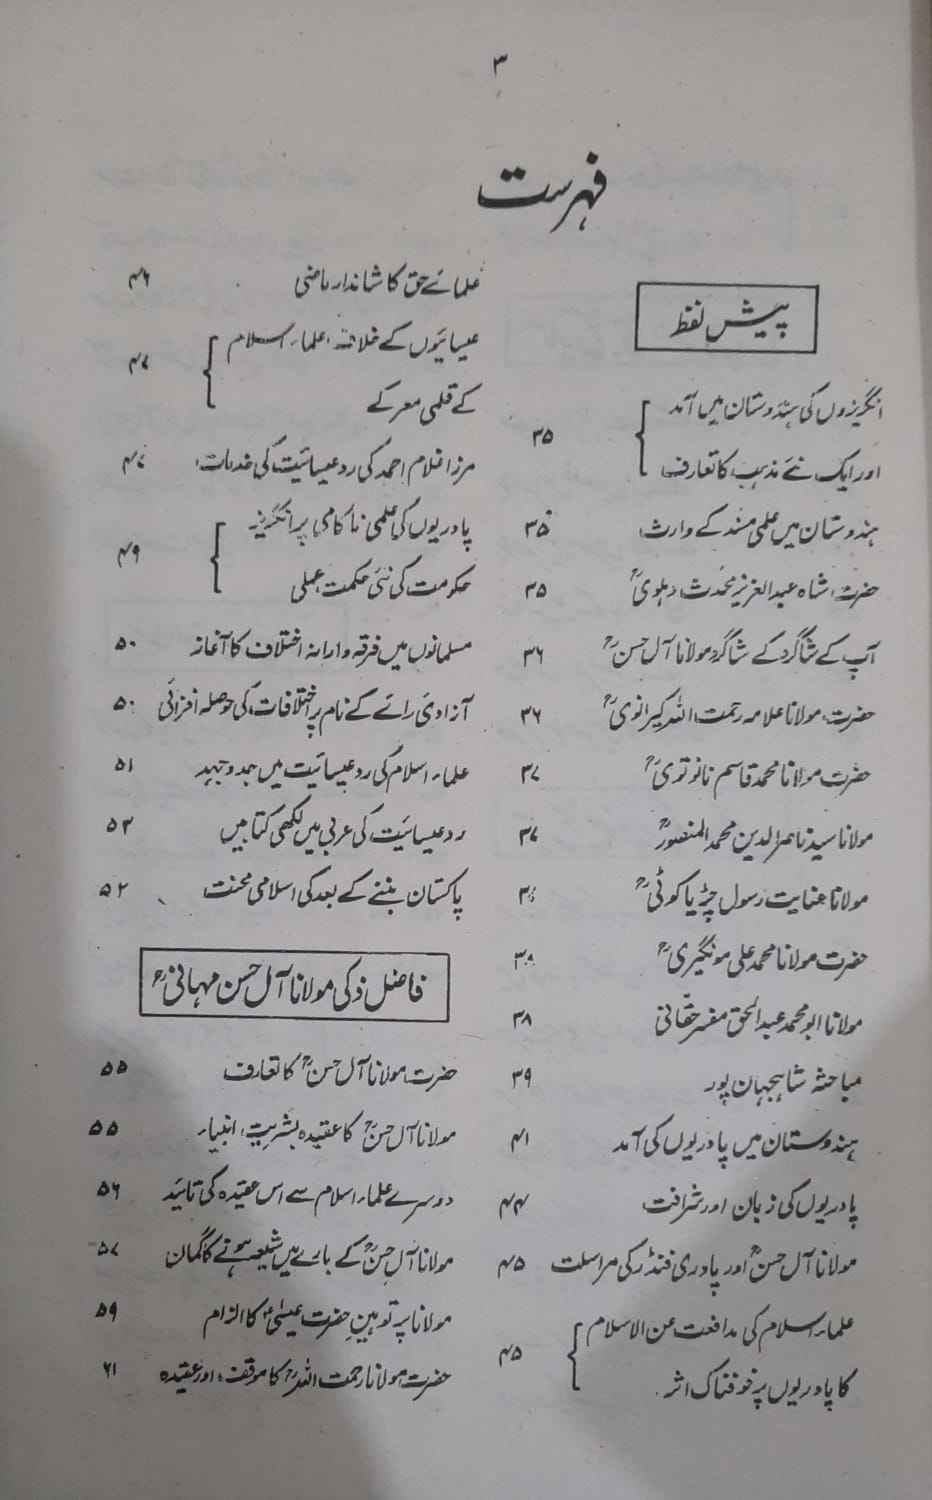 ۳
فہرست
پیش لفظ
انگریزوں کی ہندوستان میں آمد
اور ایک نئے مذہب کا تعارف ۳۵
ہندوستان میں علمی مسند کے وارث ۳۵
حضرت شاہ عبدالعزیز محدث دہلویؒ ۳۵
آپ کے شاگرد کے شاگرد مولانا آل حسنؒ ۳۶
حضرت مولانا علامہ رحمت اللہ کیرانویؒ ۳۶
حضرت مولانا محمد قاسم نانوتویؒ ۳۷
مولانا سید ناصر الدین محمد المنصورؒ ۳۷
مولانا عنایت رسول چڑیا کوٹیؒ
حضرت مولانا محمد علی مونگیریؒ ۳۸
مولانا ابو محمد عبدالحق مفسر حقانی ۳۸
مباحثہ شاہجہان پور ۳۹
ہندوستان میں پادریوں کی آمد ۴۱
پادریوں کی زبان اور شرافت ۴۴
مولانا آل حسنؒ اور پادری فنڈر کی مراسلت ۴۵
علماء اسلام کی مدافعت عن الاسلام
کا پادریوں پر خوفناک اثر ۴۵
علمائے حق کا شاندار ماضی ۴۶
عیسائیوں کے خلاف علماء اسلام
کے قلمی معرکے ۴۷
مرزا غلام احمد کی رد عیسائیت کی خدمات ۴۷
پادریوں کی علمی ناکامی پر انگریز
حکومت کی نئی حکمت عملی ۴۹
مسلمانوں میں فرقہ وارانہ اختلاف کا آغاز ۵۰
آزادی رائے کے نام پر اختلافات کی حوصلہ افزائی ۵۰
علماء اسلام کی رد عیسائیت میں جدوجہد ۵۱
رد عیسائیت کی عربی میں لکھی کتابیں ۵۲
پاکستان بننے کے بعد کی اسلامی محنت ۵۲
فاضل ذکی مولانا آل حسن مہانیؒ
حضرت مولانا آل حسنؒ کا تعارف ۵۵
مولانا آل حسنؒ کا عقیدہ بشریت انبیاء ۵۵
دوسرے علماء اسلام سے اس عقیدہ کی تائید ۵۶
مولانا آل حسنؒ کے بارے میں شیعہ ہونے کا گمان ۵۷
مولانا پر توہینِ حضرت عیسیٰؑ کا الزام ۵۹
حضرت مولانا رحمت اللہؒ کا موقف اور عقیدہ ۶۱